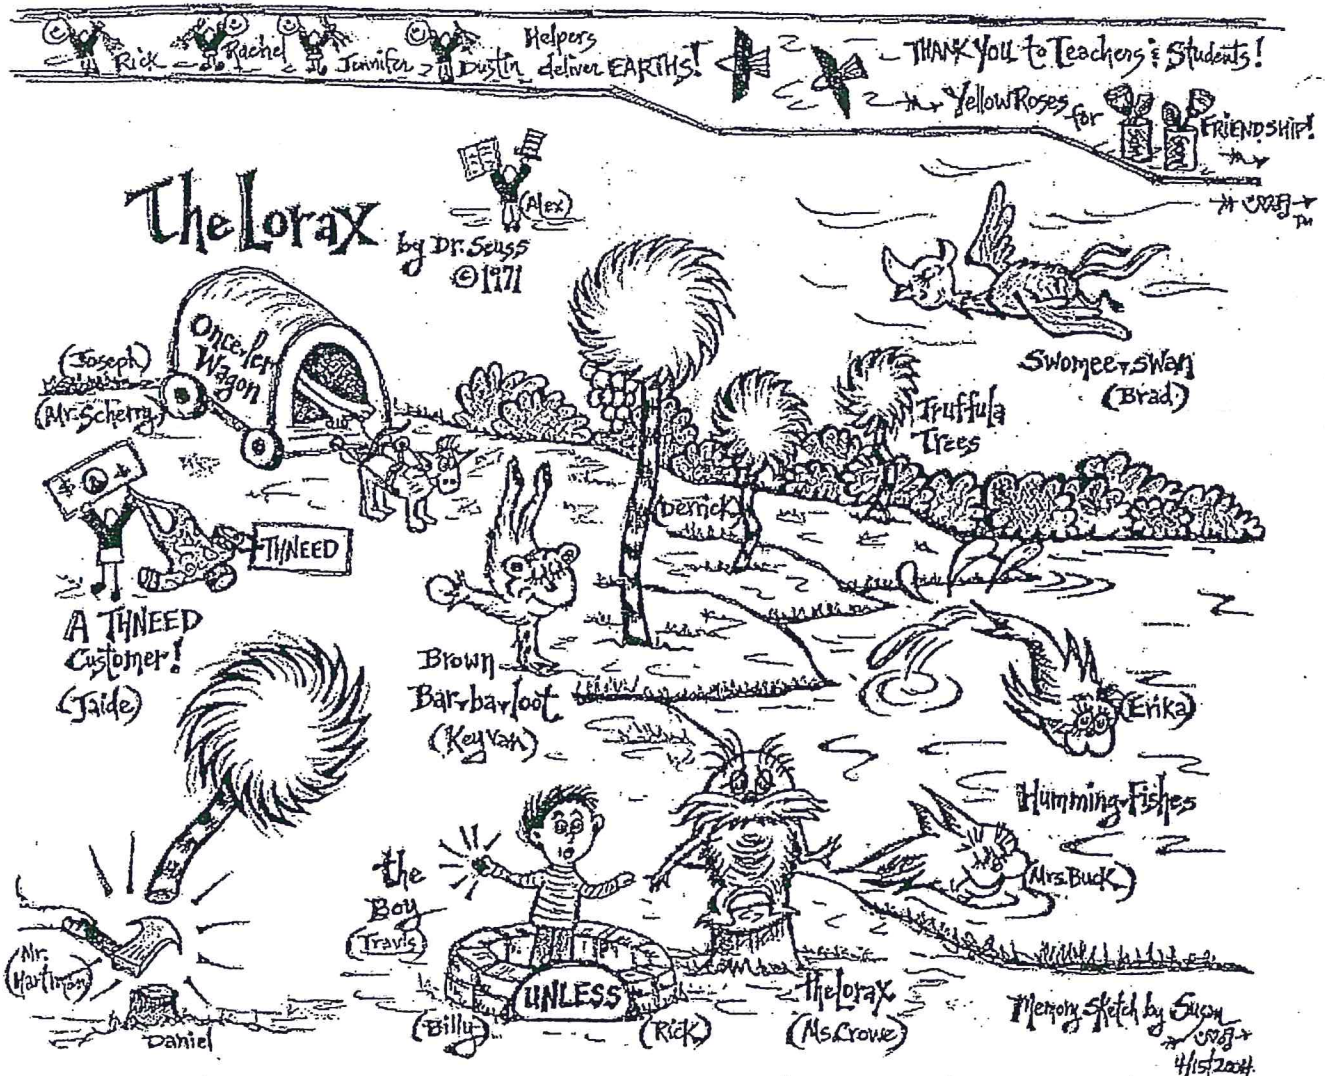 Rick
Rachel
Jennifer
Dustin
Helpers
deliver EARTHS!
THANK YOU to Teachers & Students!
Yellow Roses for
FRIENDSHIP!
The Lorax
(Alex)
by Dr. Seuss
©1971
Once-ler
Wagon
(Joseph)
(Mr. Scherry)
Swomee-swan
(Brad)
Truffula
Trees
(Derrick)
THNEED
A THNEED
Customer!
(Jaide)
Brown
Bar-ba-loot
(Keyvan)
(Erika)
Humming-Fishes
(Mrs. Buck)
the
Boy
(Travis)
Mr.
(Hartman)
Daniel
UNLESS
(Billy)
(Rick)
the Lorax
(Ms. Crowe)
Memory sketch by Susan
4/15/2004